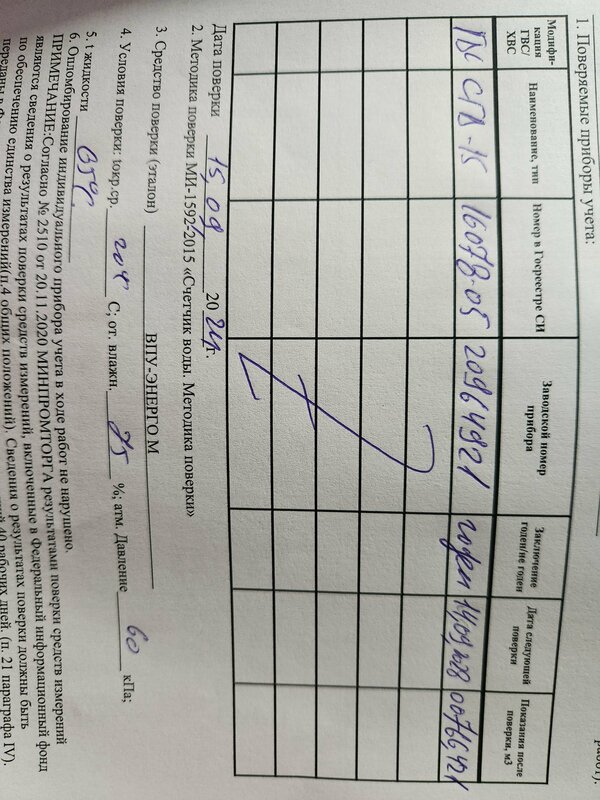 1. Поверяемые приборы учета:
Модифи-
кация
ГВС/
ХВС
Наименование, тип
Номер в Госреестре СИ
Заводской номер
прибора
Заключение
годен/не годен
Дата следующей
поверки
Показания после
поверки, м3
СГВ-15 16078-05 20964921 годен 14.09.2028 00766,421
Дата поверки 15,09 2024г.
2. Методика поверки МИ-1592-2015 «Счетчик воды. Методика поверки»
3. Средство поверки (эталон) ВПУ-ЭНЕРГО М
4. Условия поверки: tокр.ср. С; от. влажн. 75 %; атм. Давление 60 кПа;
5. t жидкости
6. Опломбирование индивидуального прибора учета в ходе работ не нарушено.
ПРИМЕЧАНИЕ:Согласно № 2510 от 20.11.2020 МИНПРОМТОРГА результатами поверки средств измерений
являются сведения о результатах поверки средств измерений, включенные в Федеральный информационный фонд
по обеспечению единства измерений(п.4 общих положений). Сведения о результатах поверки должны быть
переданы в 40 рабочих дней. (п. 21 параграфа IV).